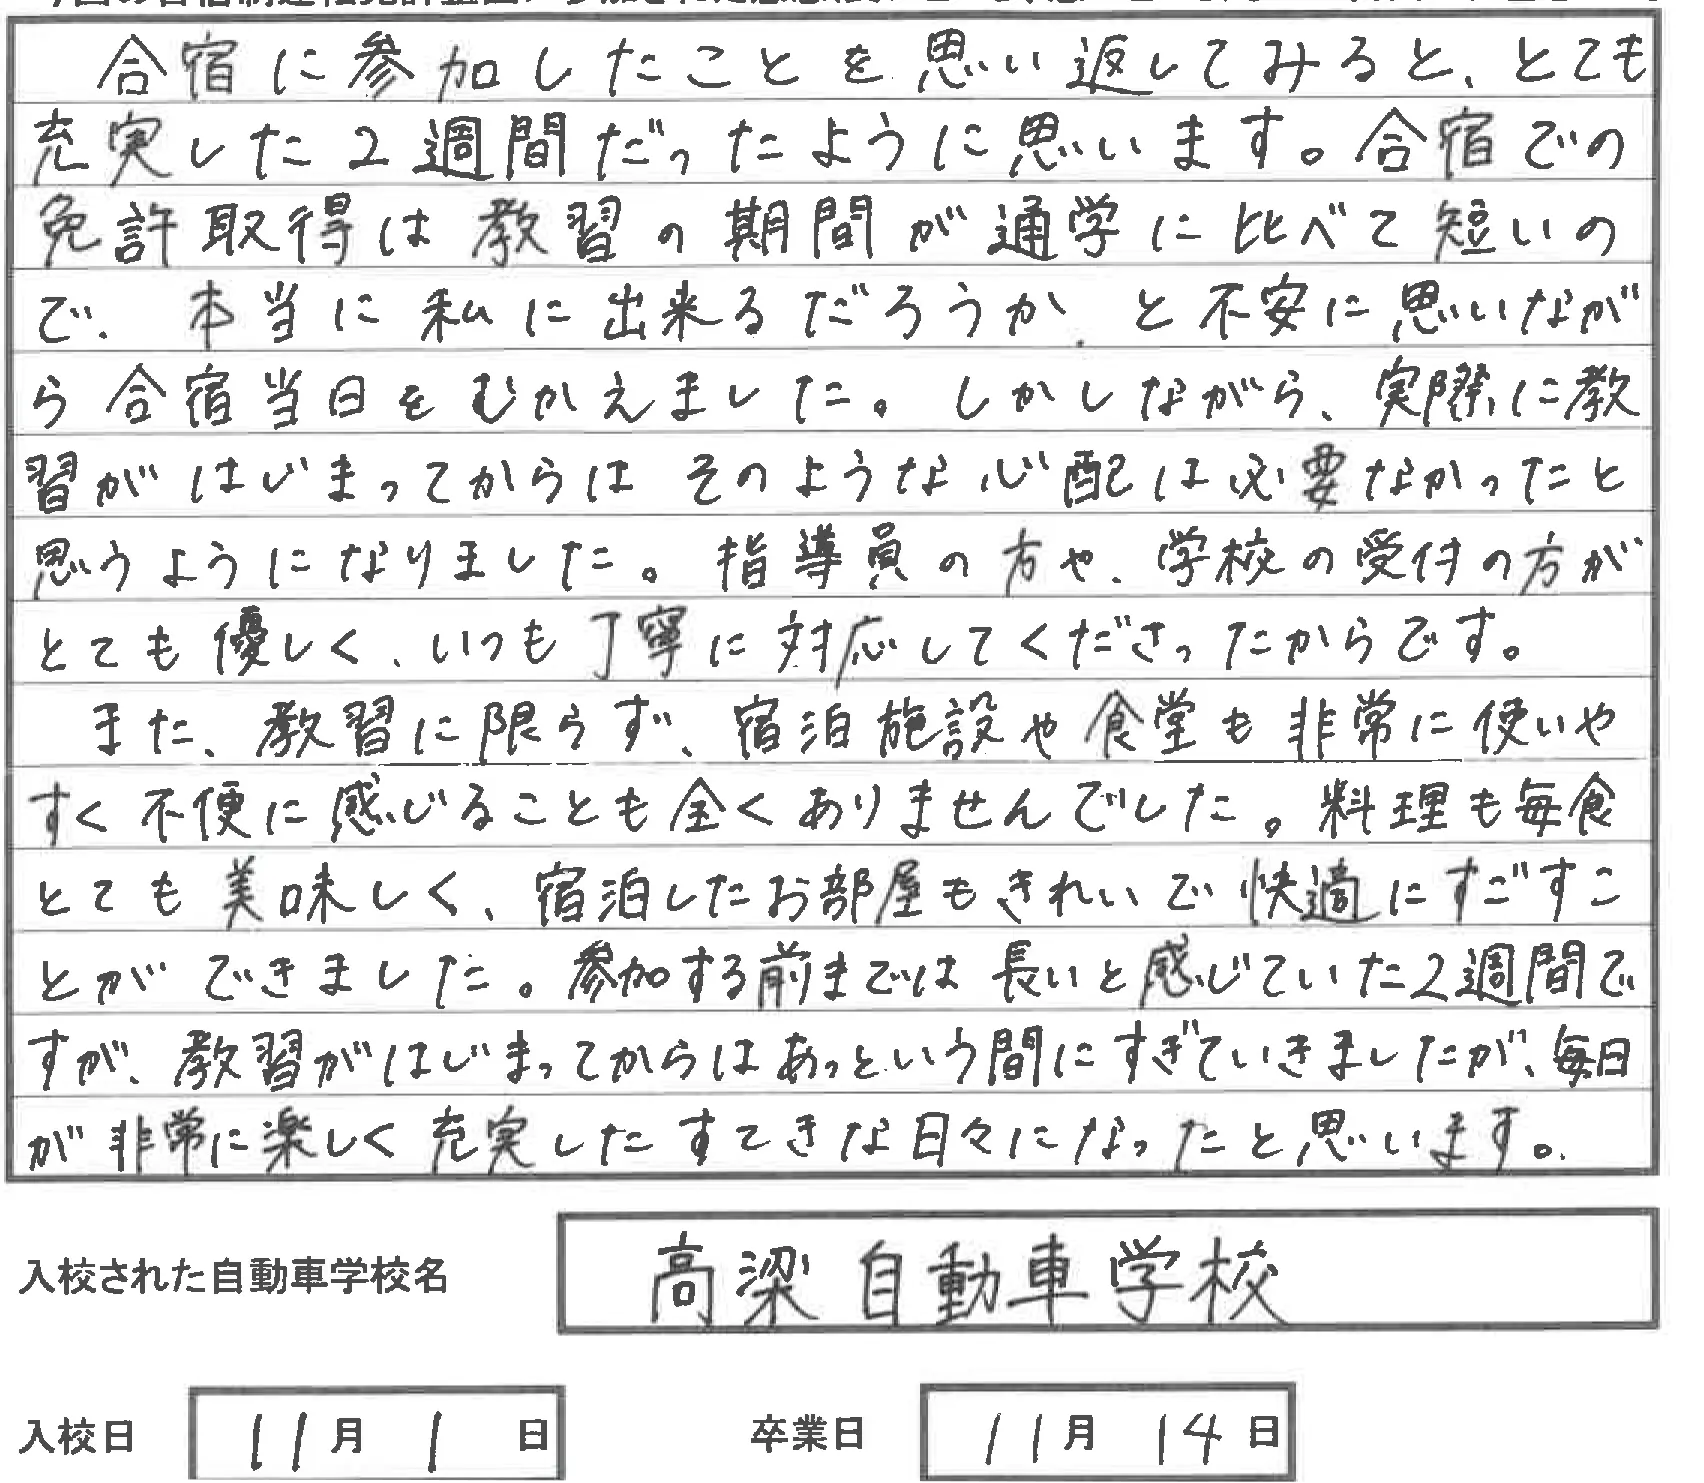 合宿に参加したことを思い返してみると、とても
充実した2週間だったように思います。合宿での
免許取得は教習の期間が通学に比べて短いの
で、本当に私に出来るだろうか、と不安に思いなが
ら合宿当日をむかえました。しかしながら、実際に教
習がはじまってからはそのような心配は必要なかったと
思うようになりました。指導員の方や、学校の受付の方が
とても優しく、いつも丁寧に対応してくださったからです。
また、教習に限らず、宿泊施設や食堂も非常に使いや
すく不便に感じることも全くありませんでした。料理も毎食
とても美味しく、宿泊したお部屋もきれいで快適にすごすこ
とができました。参加する前までは長いと感じていた2週間で
すが、教習がはじまってからはあっという間にすぎていきましたが、毎日
が非常に楽しく充実したすてきな日々になったと思います。
入校された自動車学校名 高梁自動車学校
入校日 11月 1 日 卒業日 11月 14日